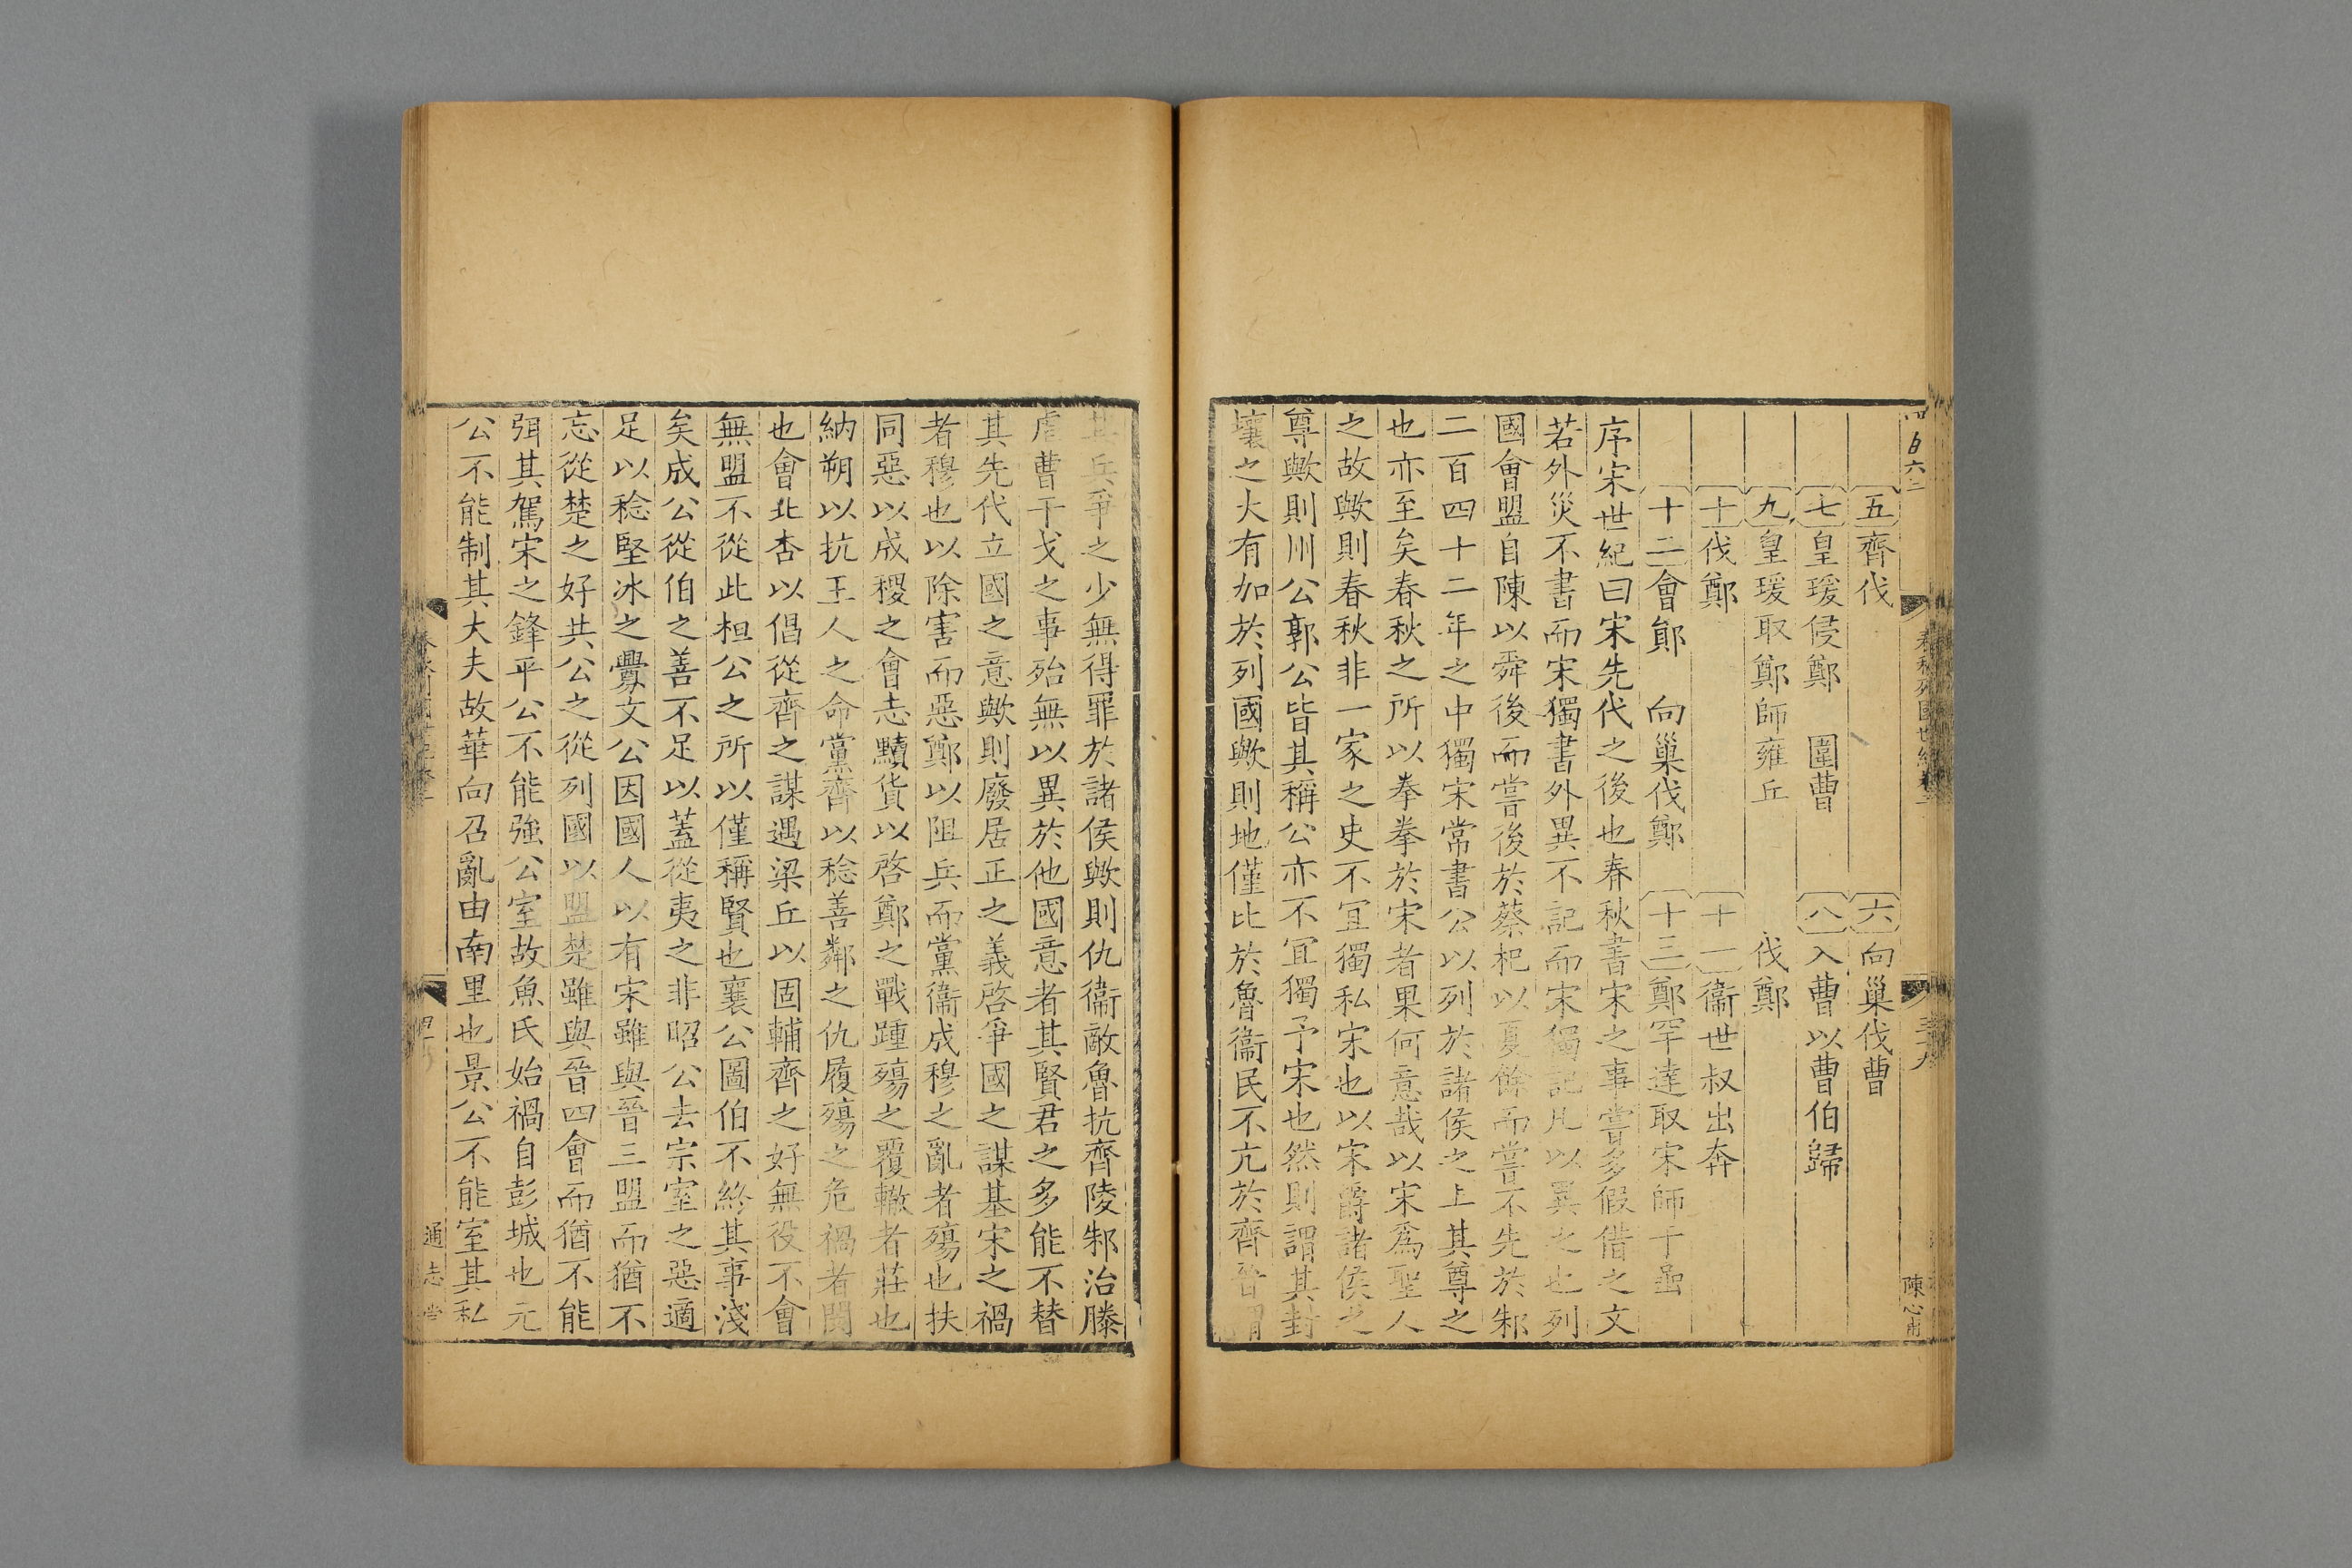 四百六二
春秋列國世紀編卷二
三十九
陳心甫
五齊伐 六向巢伐曹
七皇瑗侵鄭 圍曹 八入曹以曹伯歸
九皇瑗取鄭師雍丘 伐鄭
十伐鄭 十一衞世叔出奔
十二會鄖 向巢伐鄭 十三鄭罕達取宋師于嵒
序宋世紀曰宋先代之後也春秋書宋之事嘗多假借之文
若外災不書而宋獨書外異不記而宋獨記凡以異之也列
國會盟自陳以舜後而嘗後於蔡杞以夏餘而嘗不先於邾
二百四十二年之中獨宋常書公以列於諸侯之上其尊之
也亦至矣春秋之所以拳拳於宋者果何意哉以宋爲聖人
之故歟則春秋非一家之史不冝獨私宋也以宋爵諸侯之
尊歟則州公郭公皆其稱公亦不冝獨予宋也然則謂其封
壤之大有加於列國歟則地僅比於魯衞民不亢於齊晉謂
其兵爭之少無得罪於諸侯歟則仇衞敵魯抗齊陵邾治滕
虐曹干戈之事殆無以異於他國意者其賢君之多能不替
其先代立國之意歟則廢居正之義啓爭國之謀基宋之禍
者穆也以除害而惡鄭以阻兵而黨衞成穆之亂者殤也扶
同惡以成稷之會志黷貨以啓鄭之戰踵殤之覆轍者莊也
納朔以抗王人之命黨齊以稔善鄰之仇履殤之危禍者閔
也會北杏以倡從齊之謀遇梁丘以固輔齊之好無役不會
無盟不從此桓公之所以僅稱賢也襄公圖伯不終其事淺
矣成公從伯之善不足以蓋從夷之非昭公去宗室之惡適
足以稔堅冰之釁文公因國人以有宋雖與晉三盟而猶不
忘從楚之好共公之從列國以盟楚雖與晉四會而猶不能
弭其駕宋之鋒平公不能強公室故魚氏始禍自彭城也元
公不能制其大夫故華向召亂由南里也景公不能室其私
通志堂